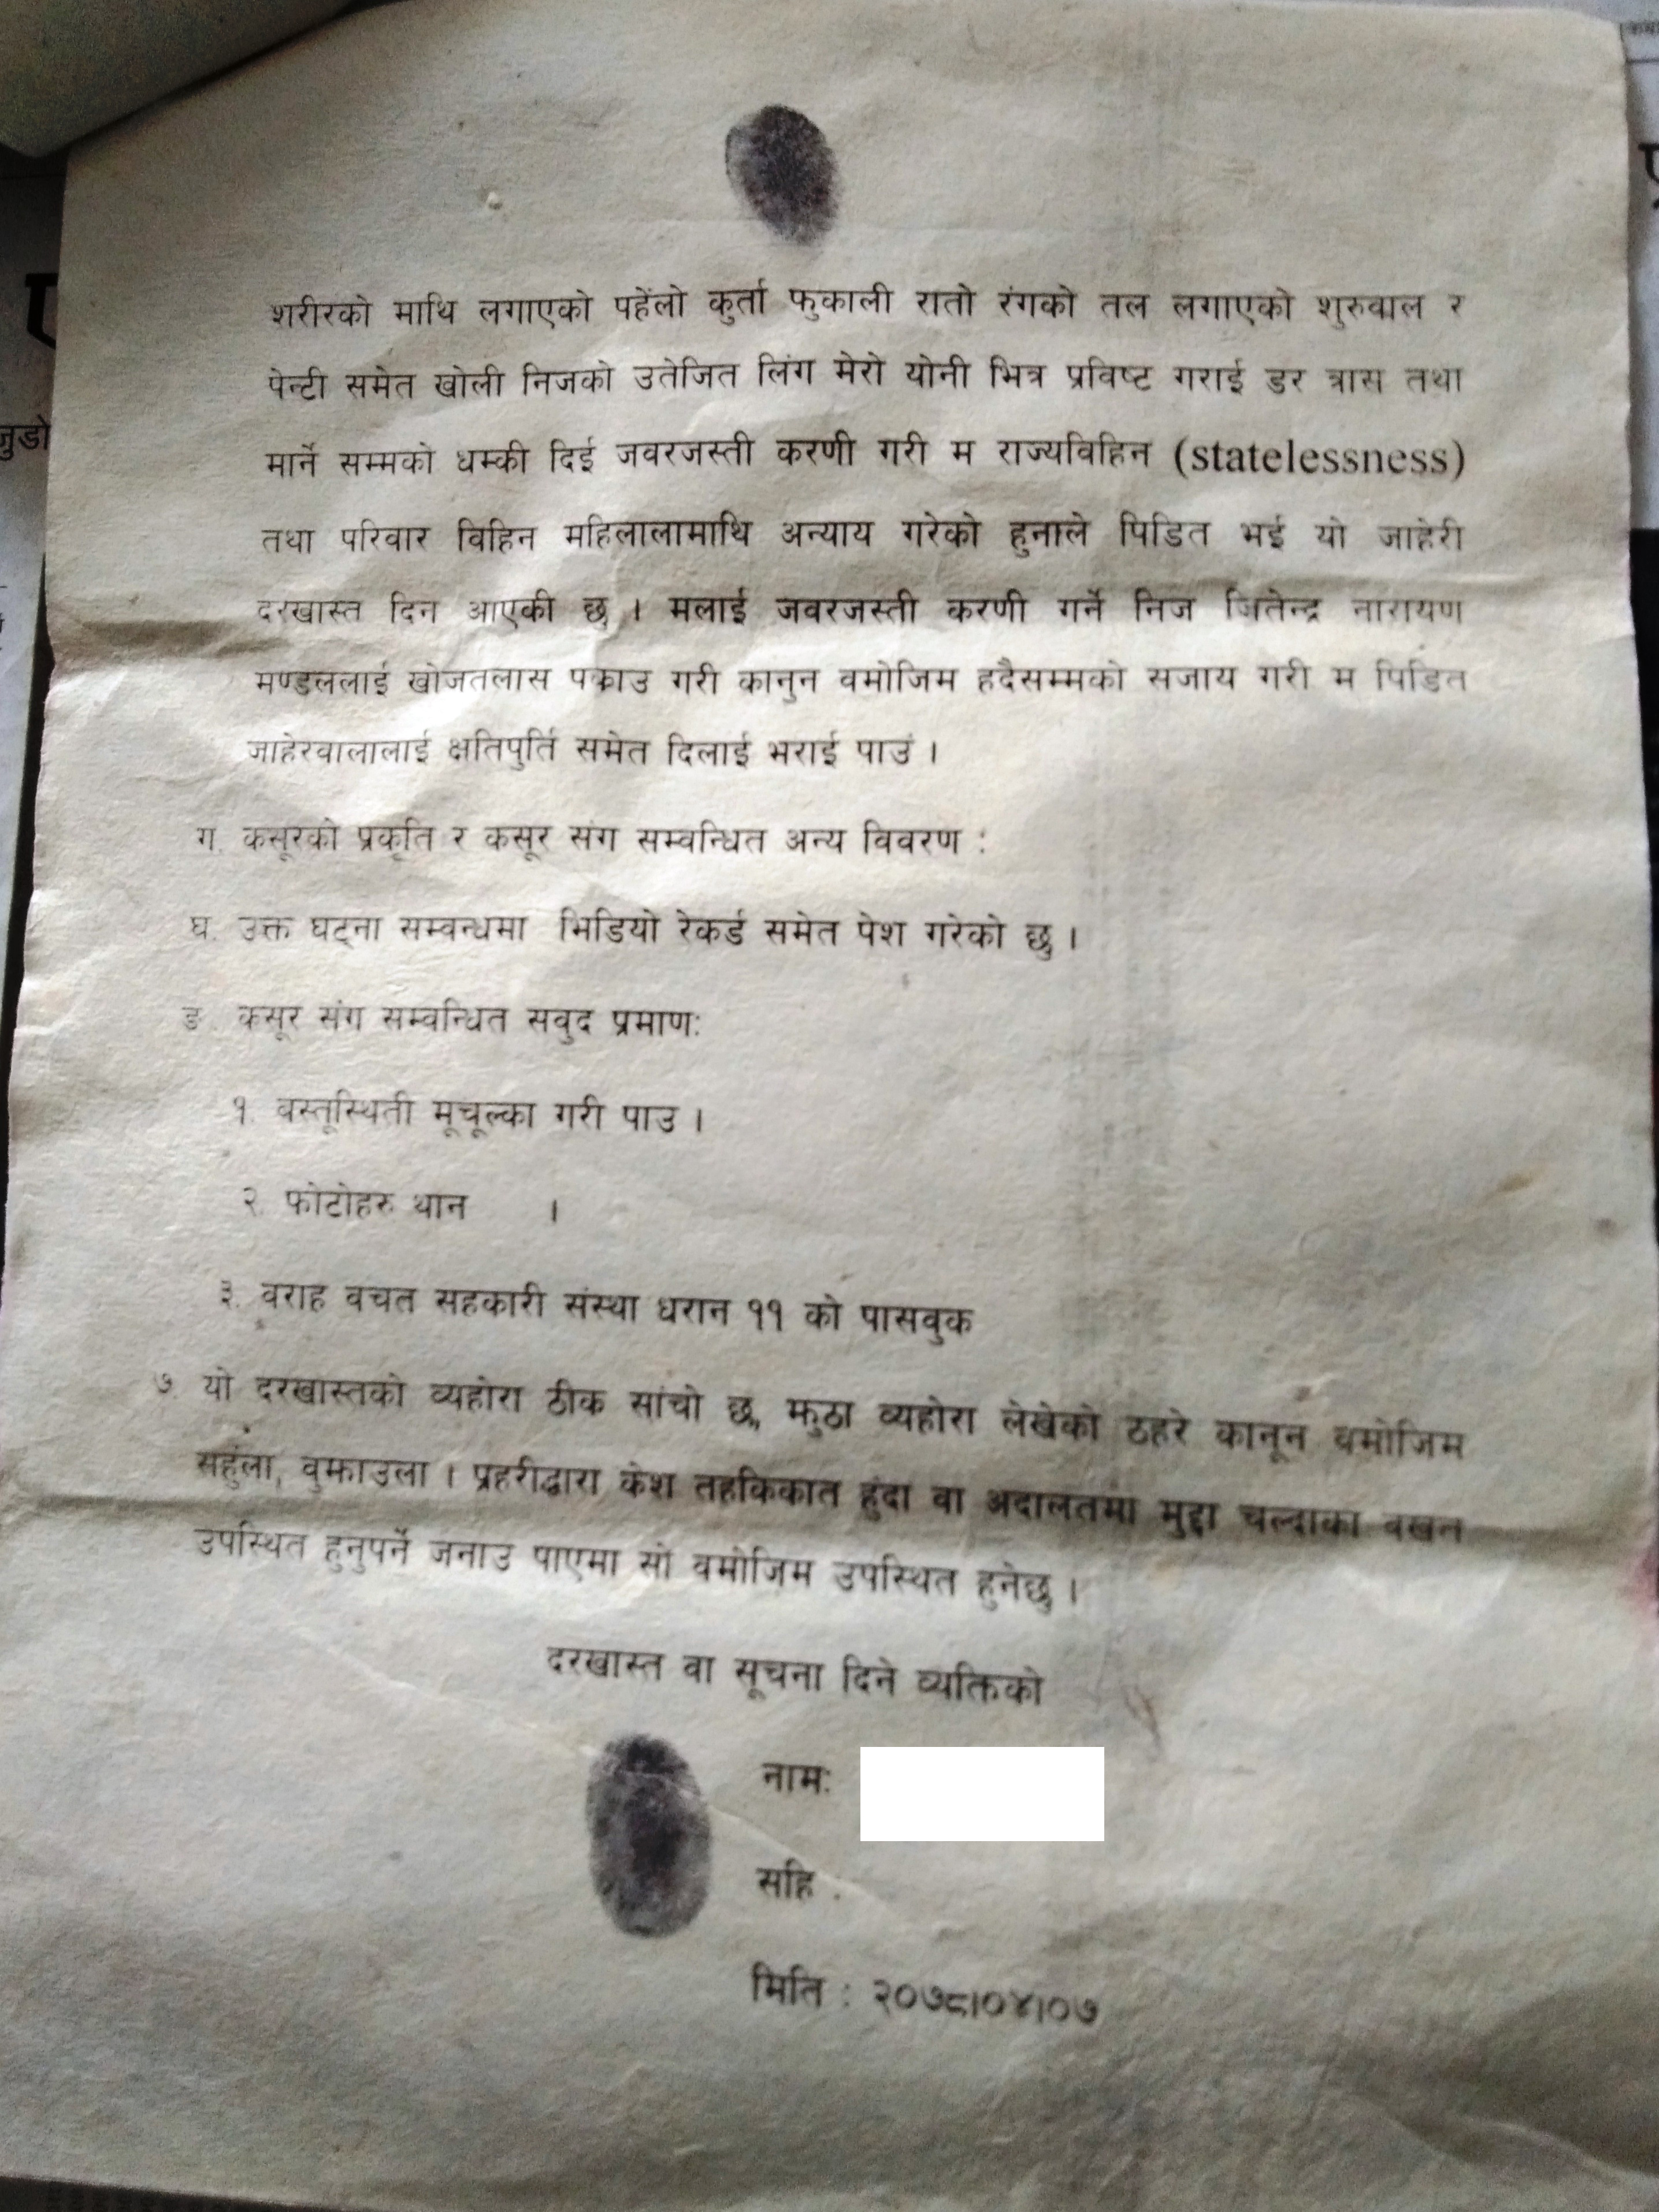 शरीरको माथि लगाएको पहेंलो कुर्ता फुकाली रातो रंगको तल लगाएको शुरुवाल र
पेन्टी समेत खोली निजको उतेजित लिंग मेरो योनी भित्र प्रविष्ट गराई डर त्रास तथा
मार्ने सम्मको धम्की दिई जवरजस्ती करणी गरी म राज्यविहिन (statelessness)
तथा परिवार विहिन महिलालामाथि अन्याय गरेको हुनाले पिडित भई यो जाहेरी
दरखास्त दिन आएकी छु । मलाई जवरजस्ती करणी गर्ने निज जितेन्द्र नारायण
मण्डललाई खोजतलास पक्राउ गरी कानुन वमोजिम हदैसम्मको सजाय गरी म पिडित
जाहेरवालालाई क्षतिपुर्ति समेत दिलाई भराई पाउं ।
ग. कसूरको प्रकृति र कसूर संग सम्वन्धित अन्य विवरण :
घ. उक्त घट्ना सम्वन्धमा भिडियो रेकर्ड समेत पेश गरेको छु ।
ङ. कसूर संग सम्वन्धित सवुद प्रमाण:
१. वस्तूस्थिती मूचूल्का गरी पाउ ।
२. फोटोहरु थान ।
३. वराह वचत सहकारी संस्था धरान ११ को पासवुक
७. यो दरखास्तको व्यहोरा ठीक सांचो छ, झुठा व्यहोरा लेखेको ठहरे कानून वमोजिम
सहुंला, वुझाउला । प्रहरीद्वारा केश तहकिकात हुंदा वा अदालतमा मुद्दा चल्दाका वखत
उपस्थित हुनुपर्ने जनाउ पाएमा सो वमोजिम उपस्थित हुनेछु ।
दरखास्त वा सूचना दिने व्यक्तिको
नाम:
सहि .
मिति : २०७८।०४।०७
जुडो